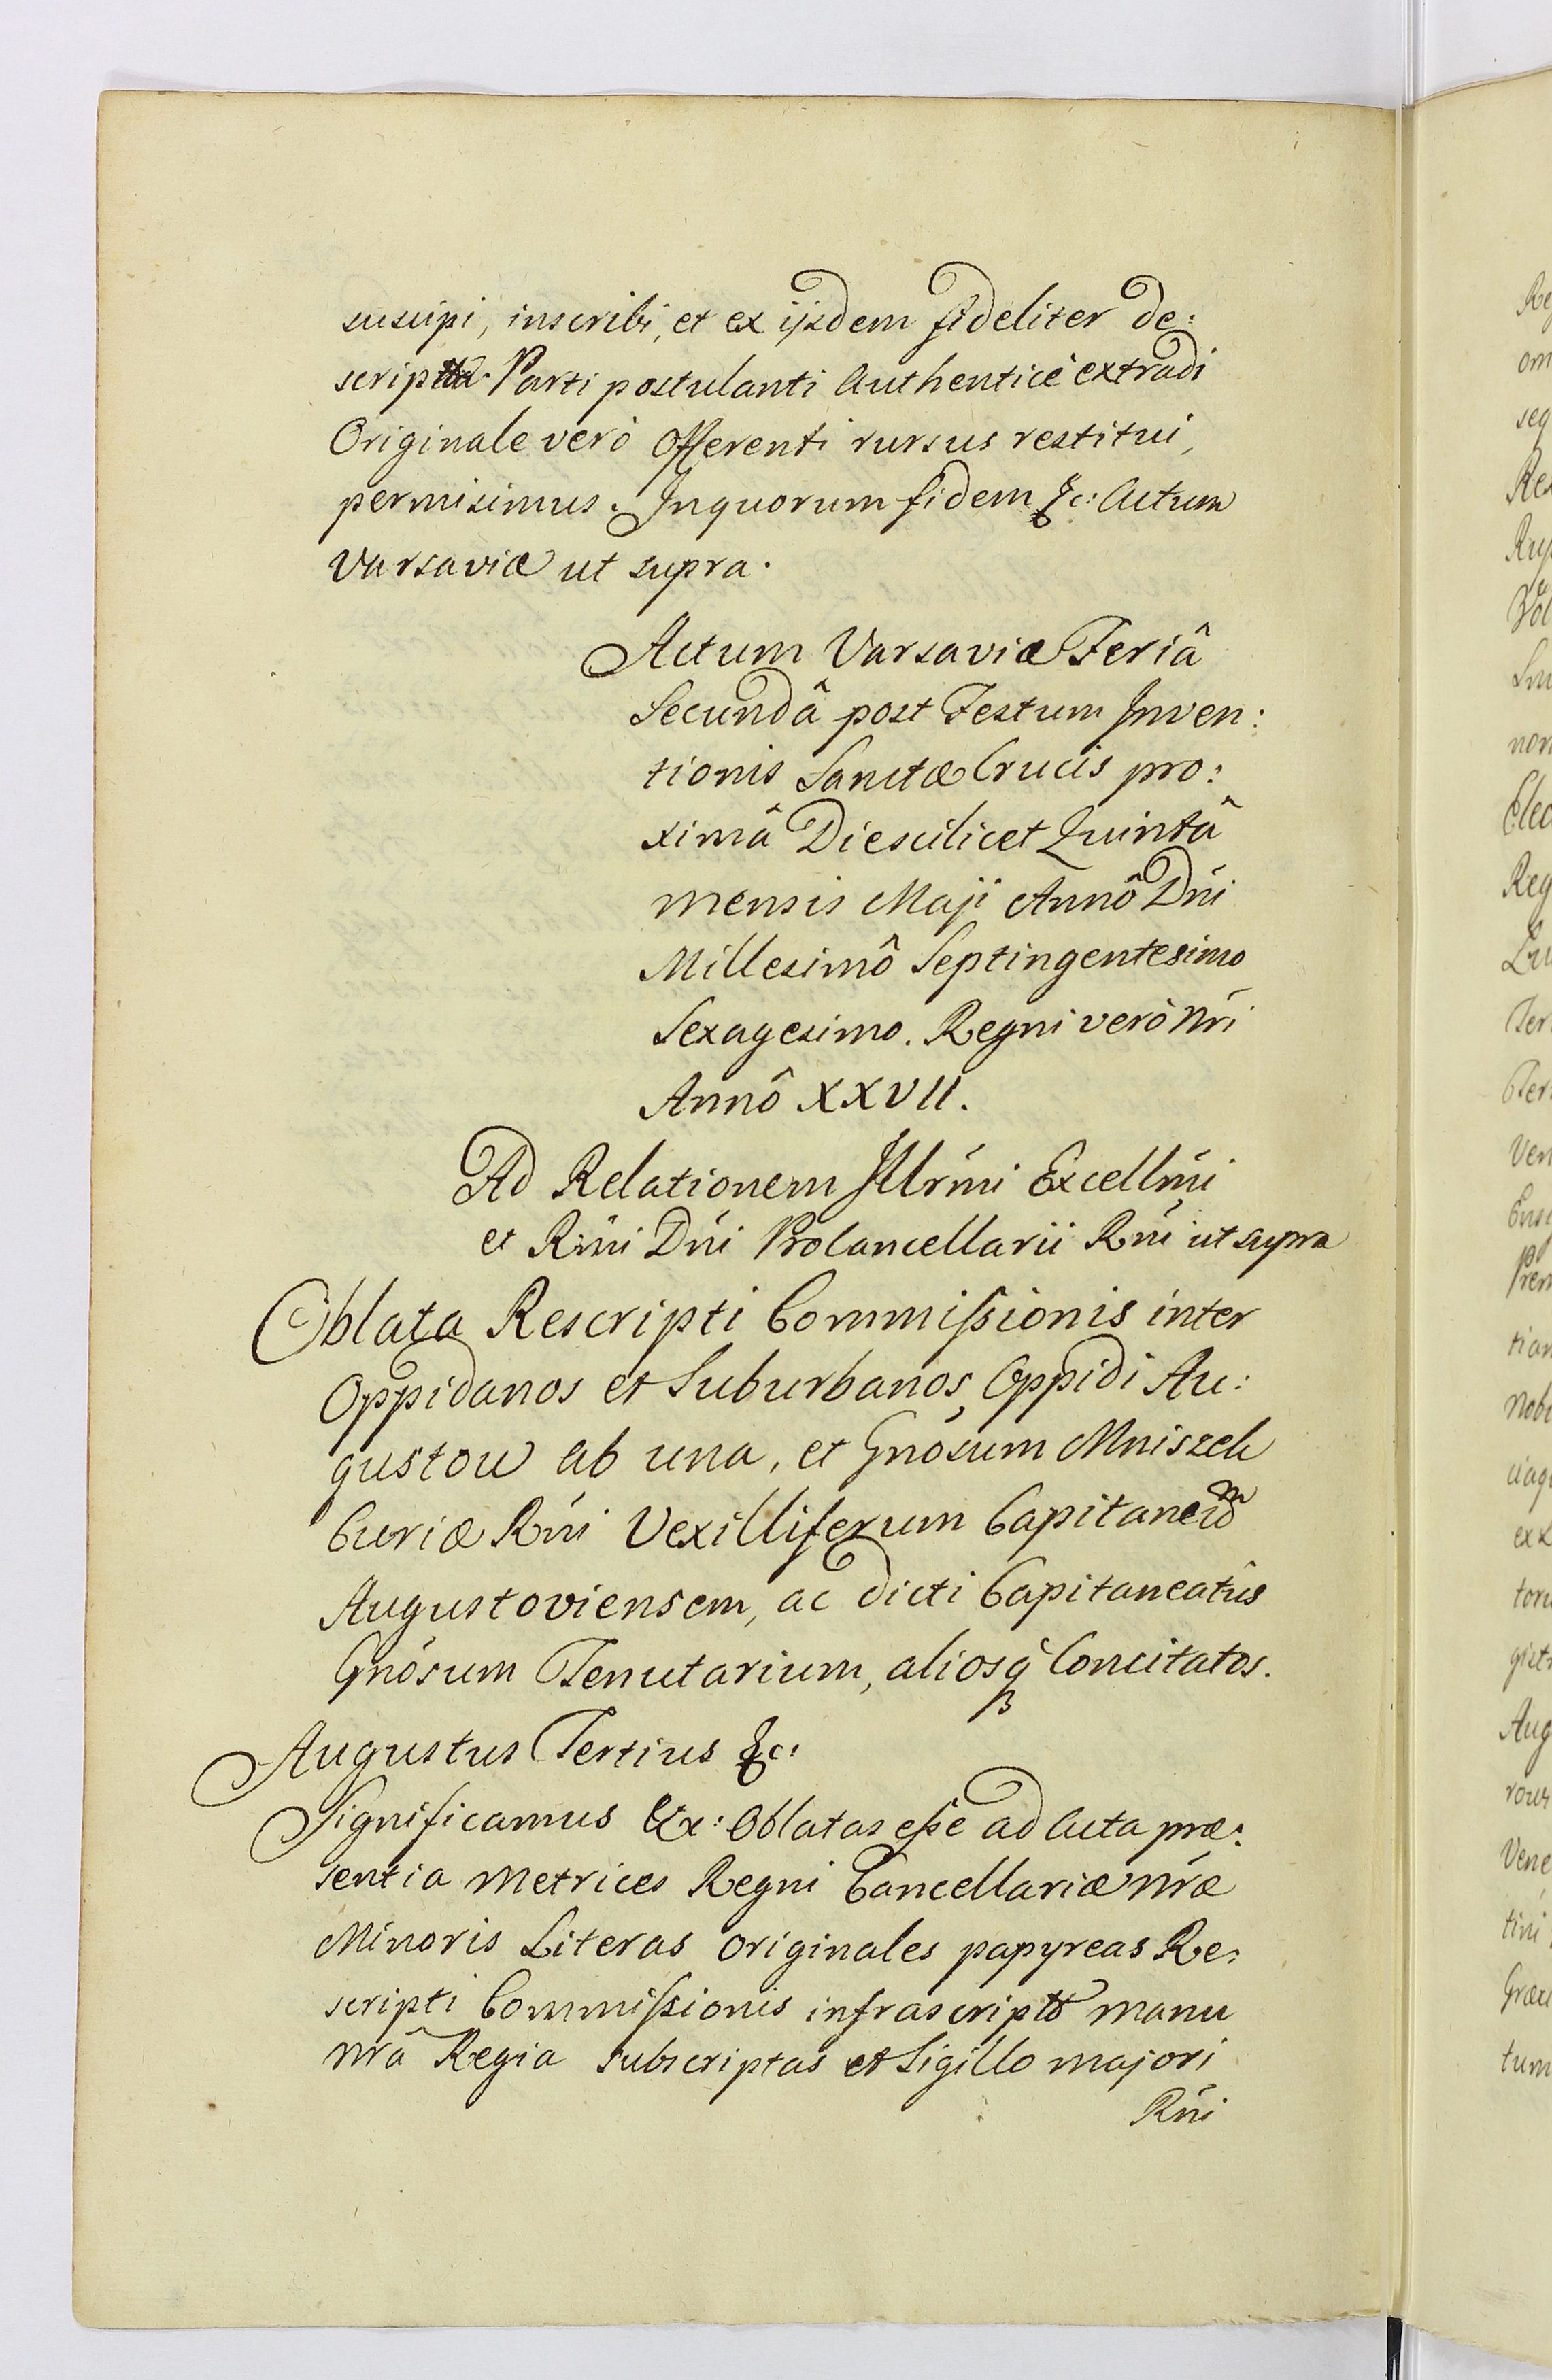 suscipi, inscribi, et ex iisdem fideliter de:
scriptta Parti postulanti Authenticè extradi
Originale verò Offerenti rursus restitui,
permisimus. Inquorum fidem &c: Actum
Varsaviæ ut supra.
Actum Varsaviæ Feriâ
Secundâ post Festum Inven:
tionis Sanctæ Crucis pro:
ximâ Die scilicet Quintâ
mensis Maji Annô Dni
Millesimô Septingentesimo
Sexagesimo. Regni verò Nri
Annô XXVII.
Ad Relationem Illrmi Excellmi
et Rmi Dni Procancellarii Rni ut supra
Oblata Rescripti Commissionis inter
Oppidanos et Suburbanos Oppidi Au:
gustow ab una, et Gnosum Mniszch
Curiæ Rni Vexilliferum Capitaneum
Augustoviensem, ac dicti Capitaneatûs
Gnosum Tenutarium, aliosq̃ Concitatos.
Augustus Tertius &c:
Significamus &c: Oblatas esse ad Acta præ:
sentia Metrices Regni Cancellariæ Nræ
Minoris Literas originales papyreas Re:
scripti Commissionis infrascriptt manu
Nrâ Regia subscriptas et Sigillo majori
Rni